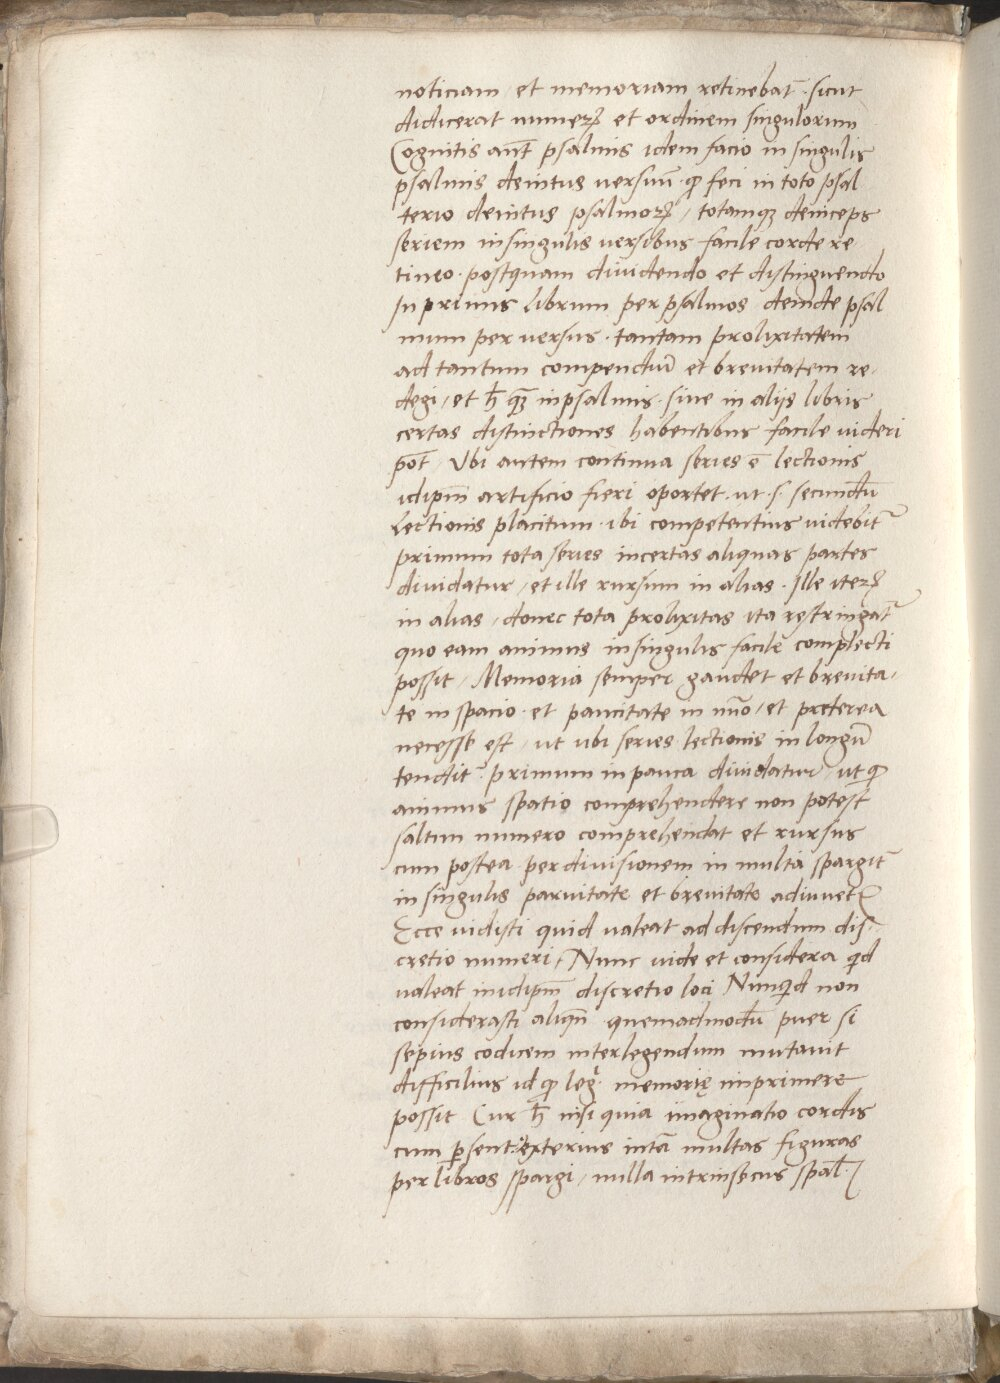 noticiam / et memoriam retinebat̃ . sicut
didicerat numeꝝ et ordinem singulorum
Cognitis aut̃ psalmis idem facio in singulis
psalmis deintus versuũ . qđ feci in toto psal
terio deintus psalmoꝝ / totamqꝫ deinceps
seriem in singulis versibus facile corde re
tineo . postquam dividendo et distinguendo
In primis librum per psalmos deinde psal
mum per versus . tantam prolixitatem
ad tantum compendiũ et brevitatem re-
degi / et h̄ qdẽ in psalmis . sive in alijs libris
certas distinctiones habentibus facile videri
pot̃ / Vbi autem continua series ẽ lectionis
idipm̃ artificio fieri oportet . ut . s . secundũ
Lectionis placitum . ibi competentius videbit̃
primum tota series incertas aliquas partes
dividatur / et ille rursum in alias . Ille iteꝝ
in alias / donec tota prolixitas ita restringat̃
quo eam animus in singulis facile complecti
possit / Memoria semper gaudet et brevita-
te in spacio . et paucitate in nũo / et preterea
necesse est / ut ubi series lectionis in longũ
tendit̃ . primum in pauca dividatur / ut qđ
animus spatio comprehendere non potest
saltim numero comprehendat et rursus
cum postea per divisionem in multa spargit̃
in singulis parvitate et brevitate adiuvet̃
Ecce vidisti quid valeat ad discendum dis-
cretio numeri / Nunc vide et considera qd
valeat in idipm̃ discretio loci Nunqd non
considerasti aliqñ quemadmodũ puer si
sepius codicem inter legendum mutavit
difficilius id qđ leg̃ . memorię imprimere
possit Cur h̄ nisi quia imaginatio cordis
cum p̃senti exterius intã multas figuras
per libros spargi / nulla intrinsecus spãl̃